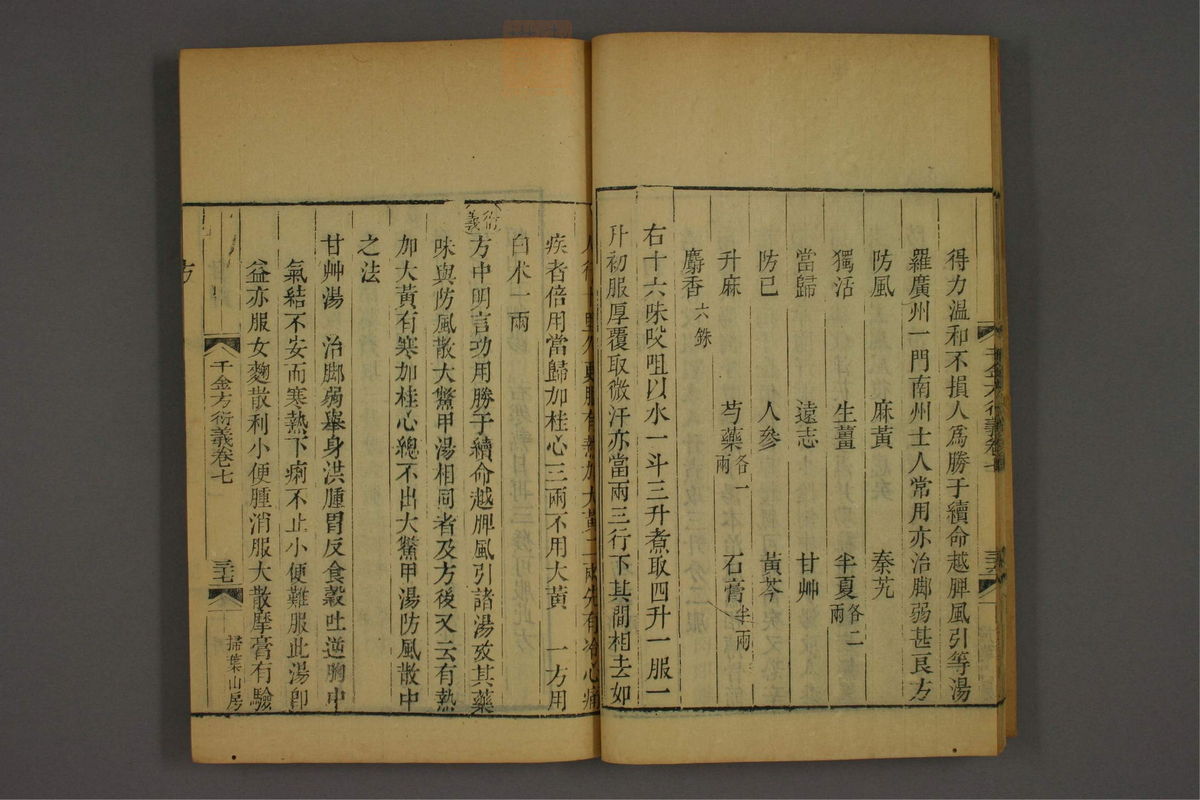 得力溫和不損人爲勝于續命越脾風引等湯
羅廣州一門南州士人常用亦治脚弱甚良方
防風　麻黃　秦艽
獨活　生薑　半夏各二兩
當歸　遠志　甘艸
防已　人參　黃芩
升麻　芍藥各一兩　石膏半兩
麝香六銖
右十六味㕮咀以水一斗三升煮取四升一服一
升初服厚覆取微汗亦當兩三行下其間相去如
人行十里久更服有熱加大黃二兩先有冷心痛
疾者倍用當歸加桂心三兩不用大黃　一方用
白术一兩
衍義
方中明言功用勝于續命越脾風引諸湯攷其藥
味與防風散大鱉甲湯相同者及方後又云有熱
加大黃有寒加桂心總不出大鱉甲湯防風散中
之法
甘艸湯　治脚弱舉身洪腫胃反食穀吐逆胸中
氣結不安而寒熱下痢不止小便難服此湯卽
益亦服女麴散利小便腫消服大散摩膏有驗
方
千金方衍義卷七
三七
掃葉山房